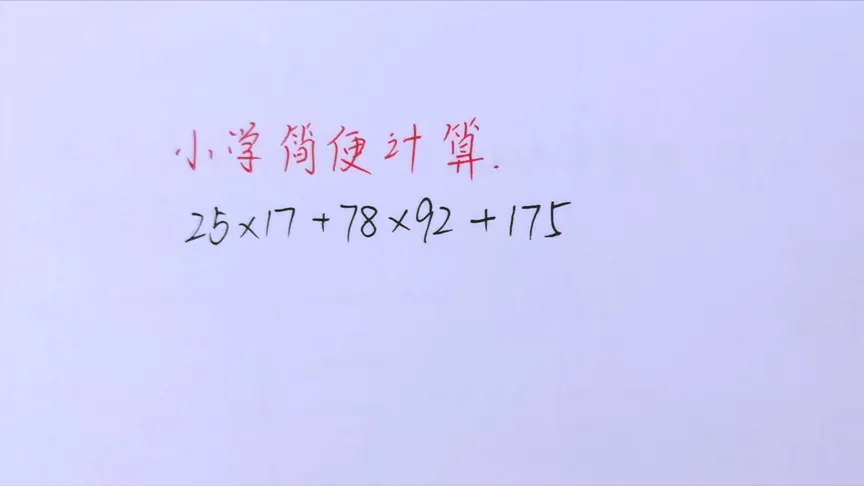 小学简便计算.
25×17+78×92+175